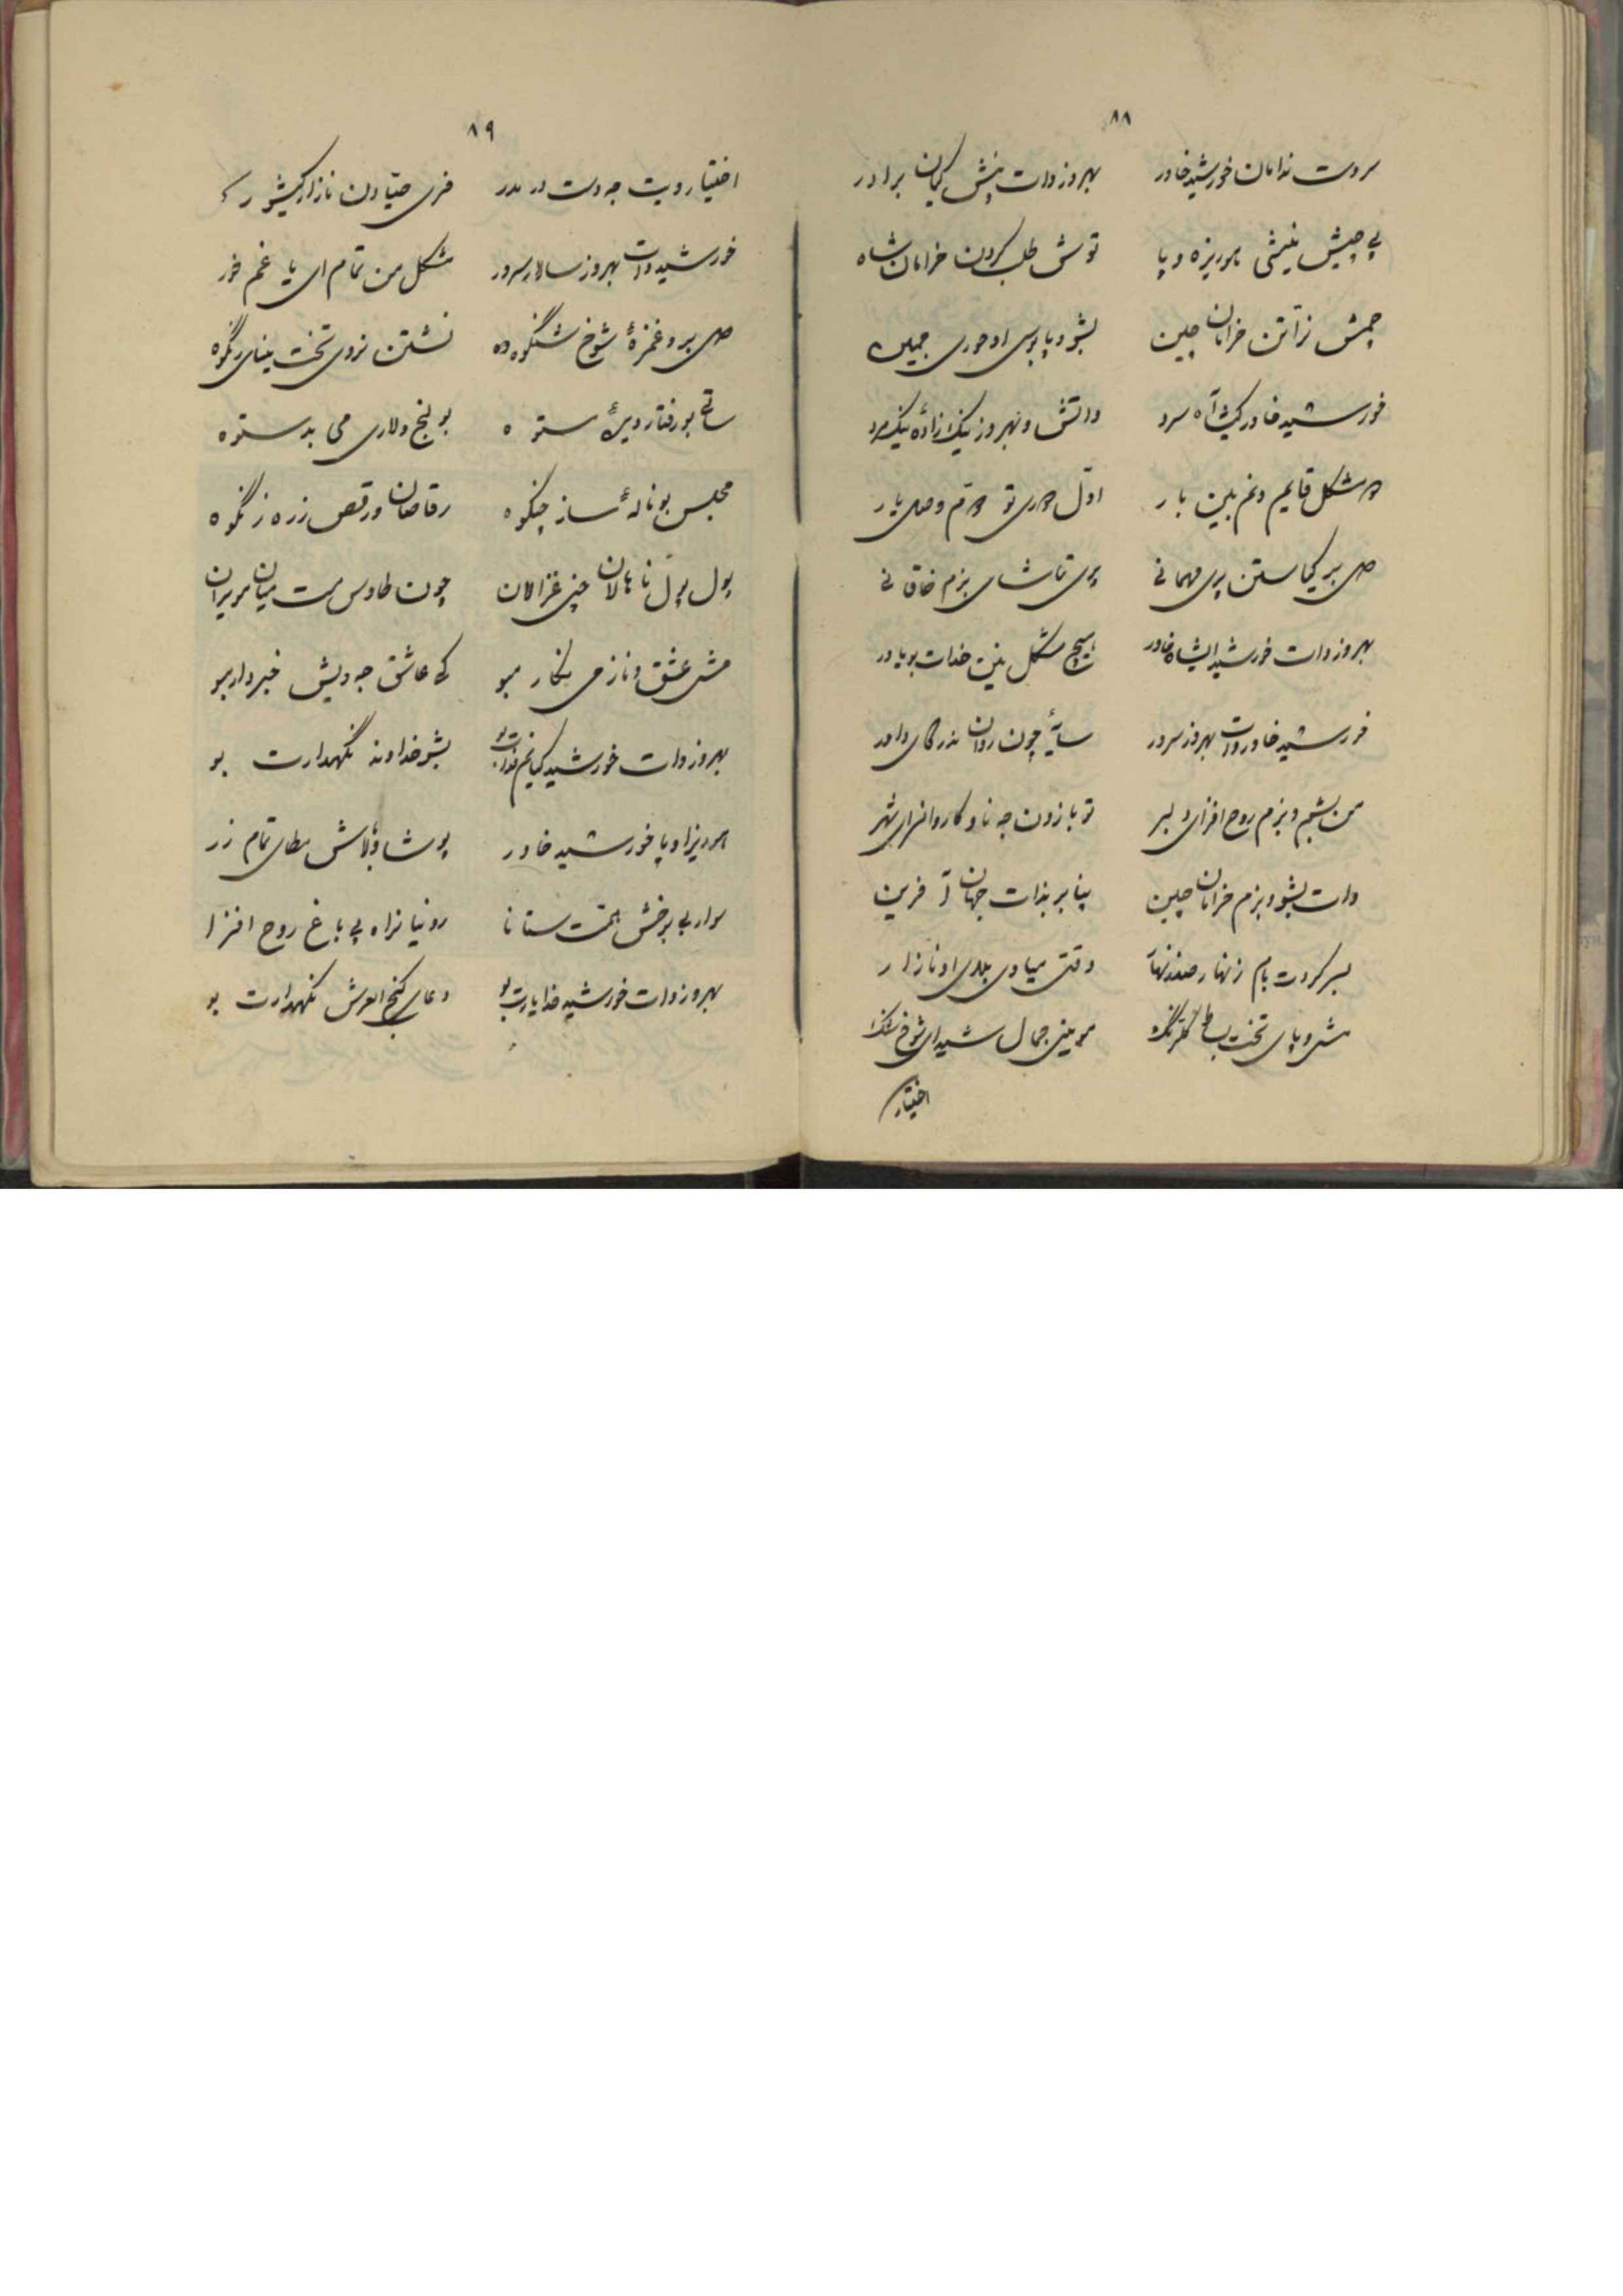 ۸۸
سردت ندامان خورشید خاور بهروز وات پیش کیان برادر
پی چیش نیشی هوریزه وپا توش طلب کردن خرامان شاه
چمش نراتن خرامان چین بشو وپابوس او حوری جبین
خورشید خاور کیشا آه سرد واتش و بهروز نیک زاده نیک مرد
مشکل قایم ونم بلین بار اول توم وصل یار
بیر کیاستن پری مهمانی پری تماشای بزم خاقانی
بهروز وات خورشید ایشاه خاور هیچ مشکل نین خدات بو یاور
خورشید خاور وات بهروز سرور سایهٔ چون روان ندرگای داور
من بشیم وبزم روح افزای دلبر تو بازون جه ناو کاروانسرای شهر
وات بشو وبزم خرامان چین پنابر بذات جهان آفرین
بسر کردت بام زنهار صد زنهار وقتی میاوی بلای او نازار
مشی وپای تخت بساط گلرنگ موینی جمال شیدای شوخ شنگ
اختیار
۸۹
اختیار ویت جه دست در مدر فری صیادن نازار کیشور
خورشید وات بهروز سالار سرور مشکل من تمام ای یار غم خور
بر وغمزهٔ شوخ شنگوه وه نشتن نروی تخت مینای رنگوه
ساقی بو رفتار وینهٔ ستوه بولنج ولاری می بدستوه
مجلس بو نالهٔ ساز چنگوه رقاصان ورقص زره زنگوه
پول پول ناهالان چنی غزالان چون طاوس مست میان مویران
مشی عشق وناز می بکار مبو کی عاشق جه ویش خبردار مبو
بهروز وات خورشید کیانم فدات بو بشو خداوند نگهدارت بو
هوریزا وپا خورشید خاور پوشا وبالاش مطلای تمام زر
سوار بی برخش همت ستانا رونیا نراه پی باغ روح افزا
بهروز وات خورشید خدا یارت بو دعای گنج العرش نگهدارت بو